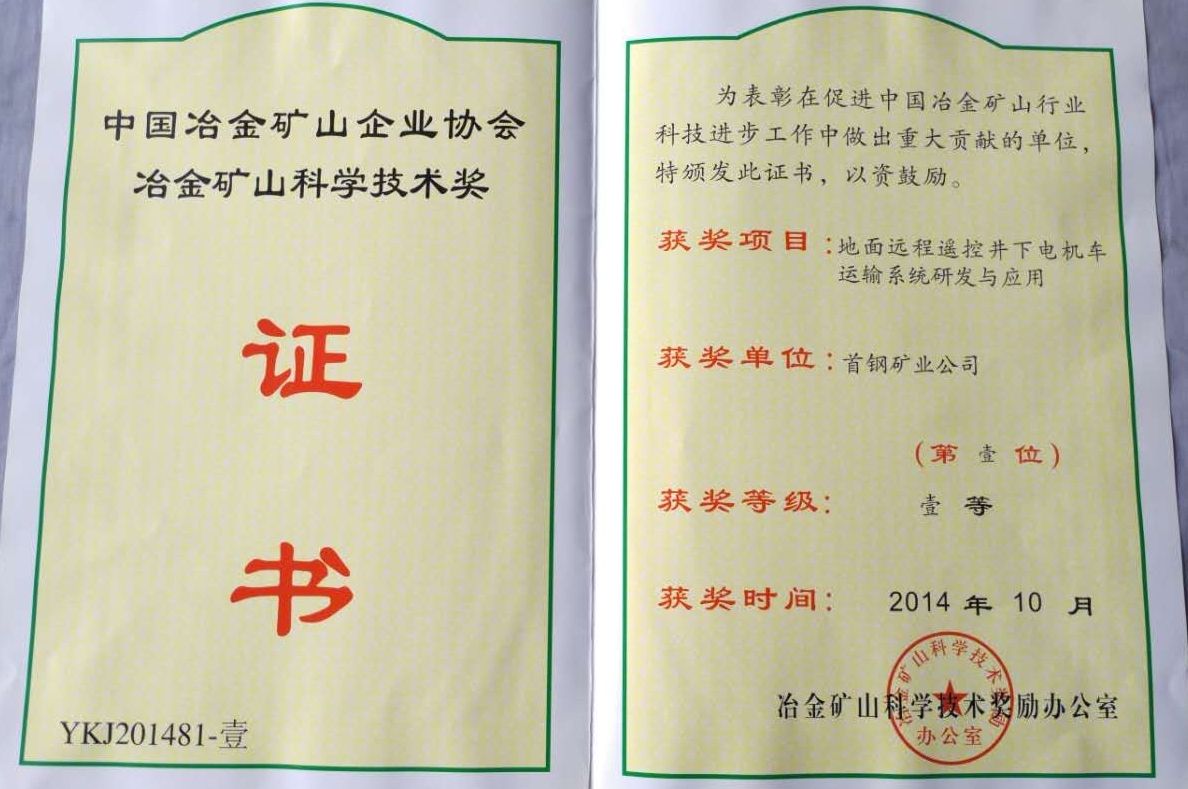 中国冶金矿山企业协会
冶金矿山科学技术奖
证
书
YKJ201481-壹
为表彰在促进中国冶金矿山行业
科技进步工作中做出重大贡献的单位，
特颁发此证书，以资鼓励。
获奖项目：地面远程遥控井下电机车
运输系统研发与应用
获奖单位：首钢矿业公司
（第 壹 位）
获奖等级： 壹 等
获奖时间： 2014 年 10 月
冶金矿山科学技术奖励办公室
冶金矿山科学技术奖励
办公室